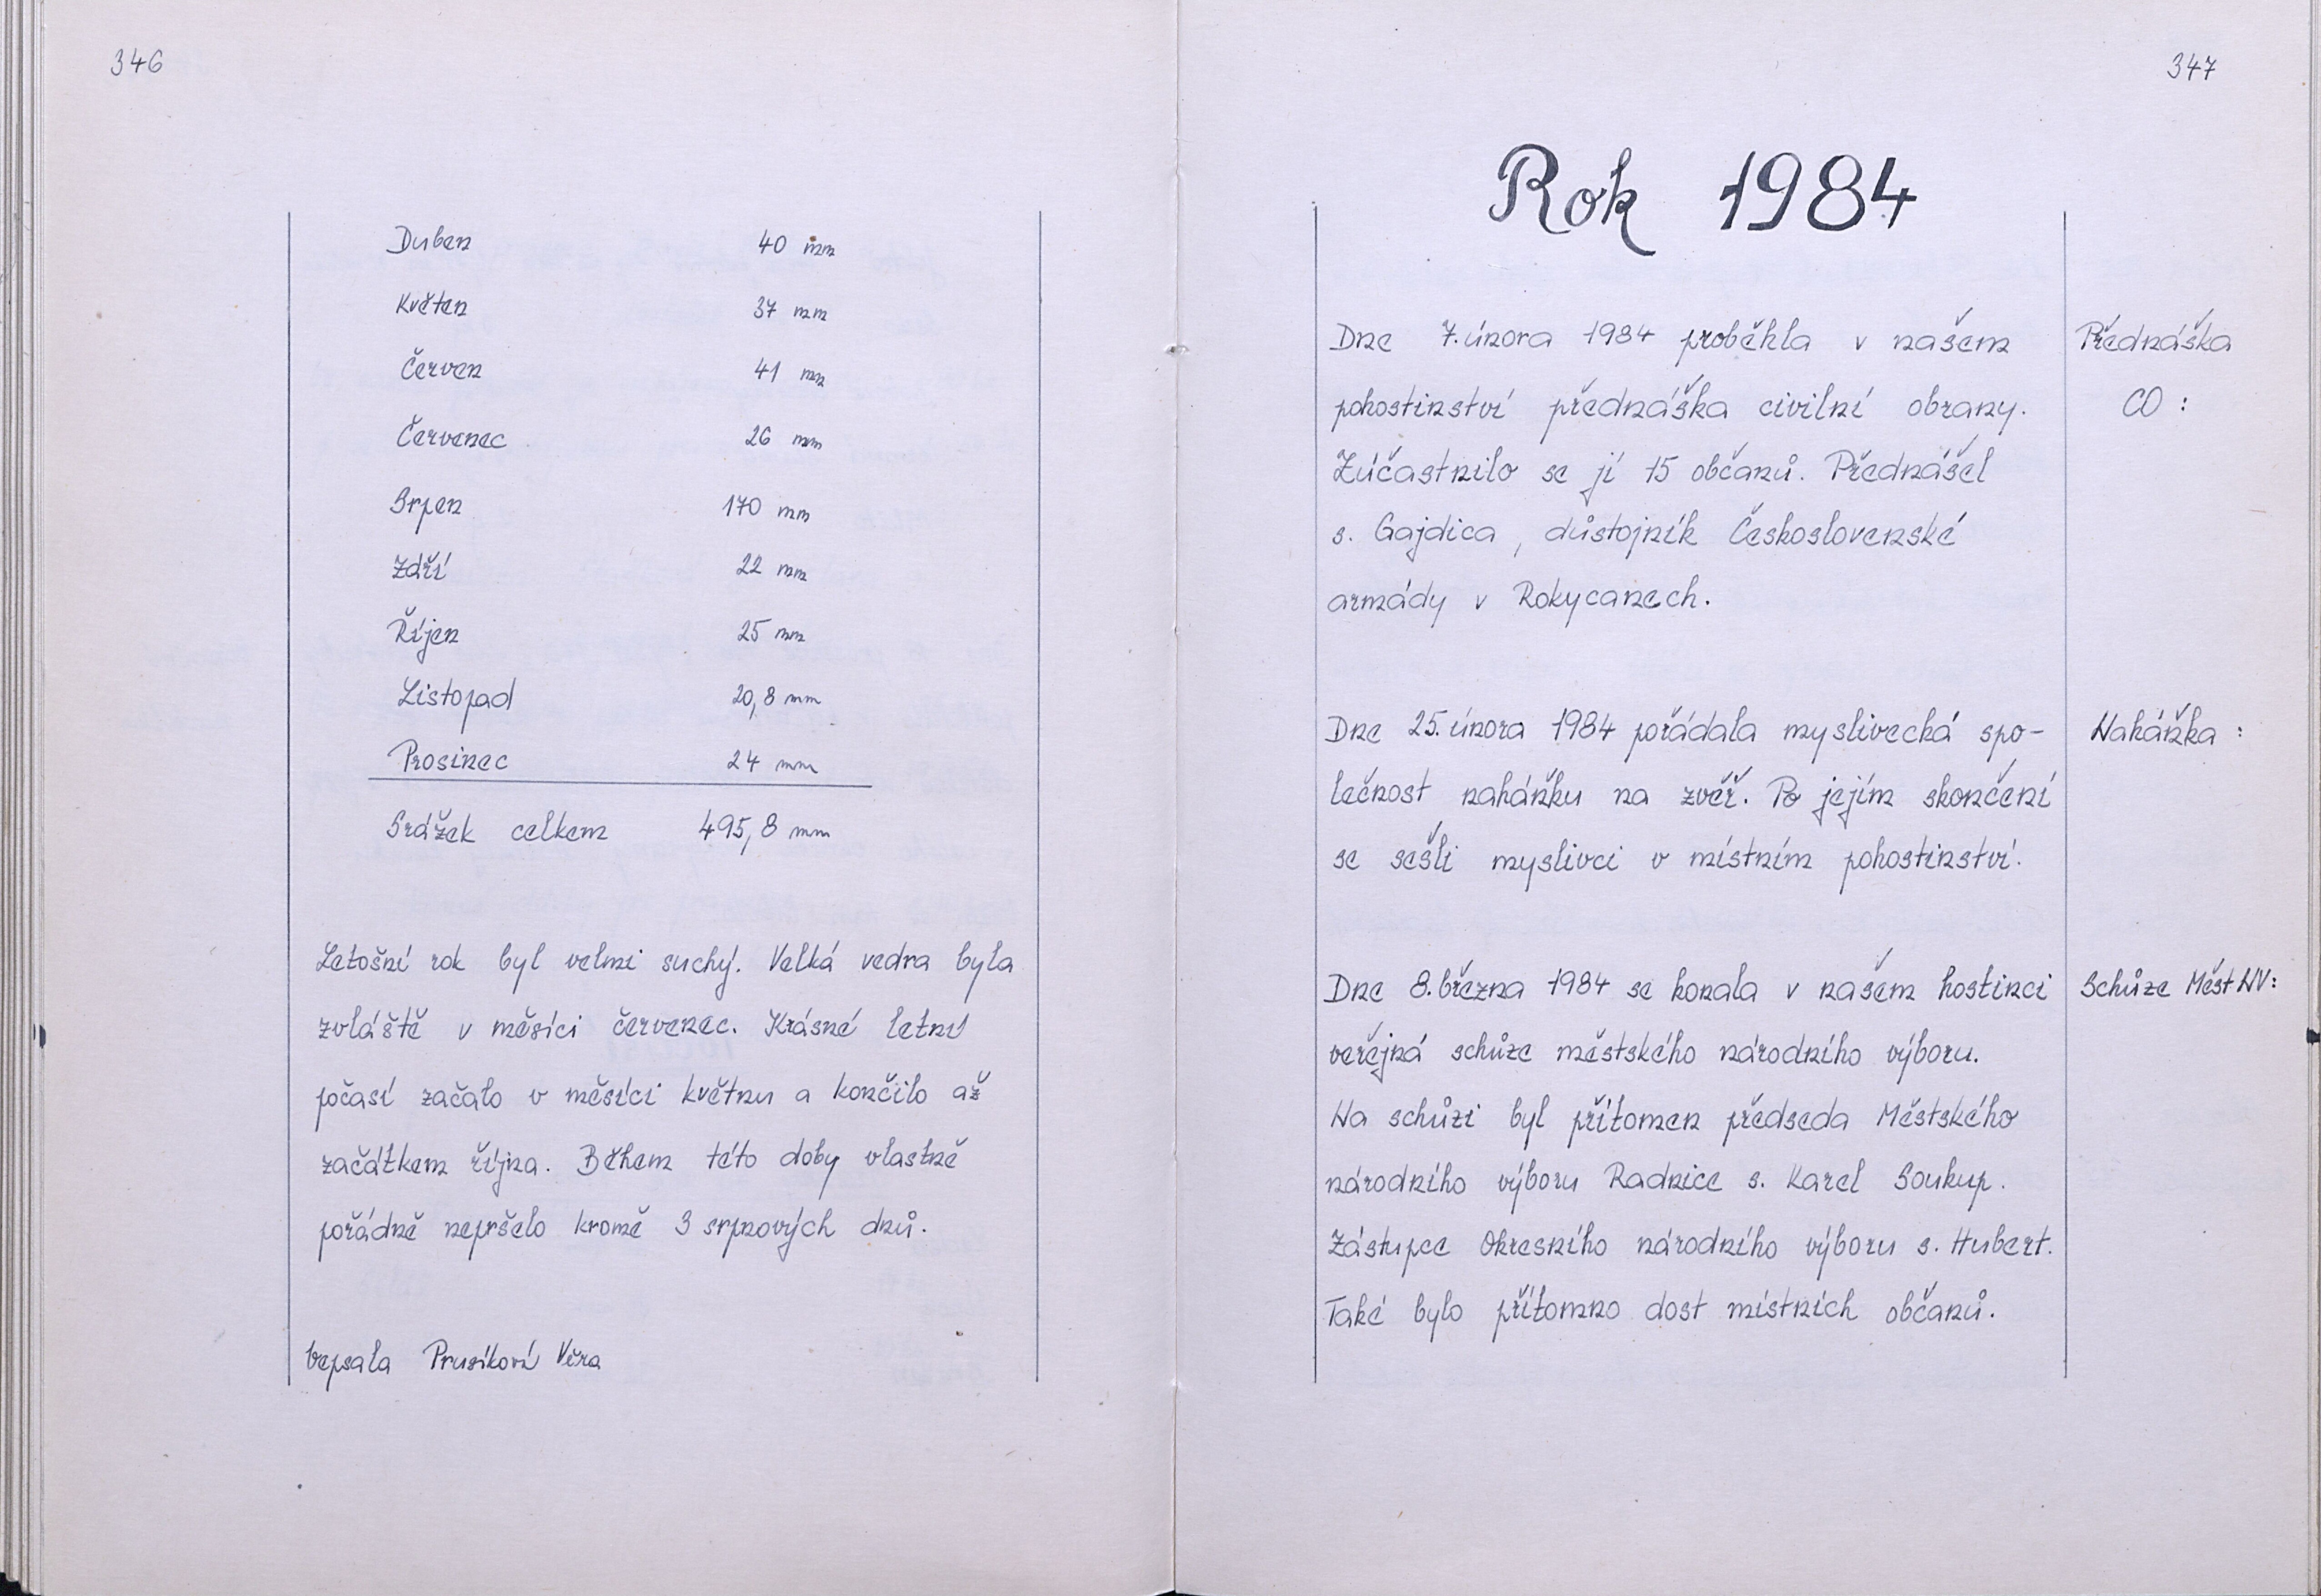 346
Duben 40 mm
Květen 37 mm
Červen 41 mm
Červenec 26 mm
Srpen 170 mm
Zdří 22 mm
Říjen 25 mm
Listopad 20,8 mm
Prosinec 24 mm
Srážek celkem 495,8 mm
Letošní rok byl velmi suchý. Velká vedra byla
zvláště v měsíci červenec. Krásné letní
počasí začalo v měsíci květnu a končilo až
začátkem října. Během této doby vlastně
pořádně nepršelo kromě 3 srpnových dnů.
Vepsala Prusíková Věra
347
Rok 1984
Dne 7. února 1984 proběhla v našem Přednáška
pohostinství přednáška civilní obrany. CO :
Zúčastnilo se jí 15 občanů. Přednášel
s. Gajdica, důstojník Československé
armády v Rokycanech.
Dne 25. února 1984 pořádala myslivecká spo- Naháňka :
lečnost naháňku na zvěř. Po jejím skončení
se sešli myslivci v místním pohostinství.
Dne 8. března 1984 se konala v našem hostinci Schůze Měst NV:
veřejná schůze městského národního výboru.
Na schůzi byl přítomen předseda Městského
národního výboru Radnice s. Karel Soukup.
Zástupce Okresního národního výboru s. Hubert.
Také bylo přítomno dost místních občanů.